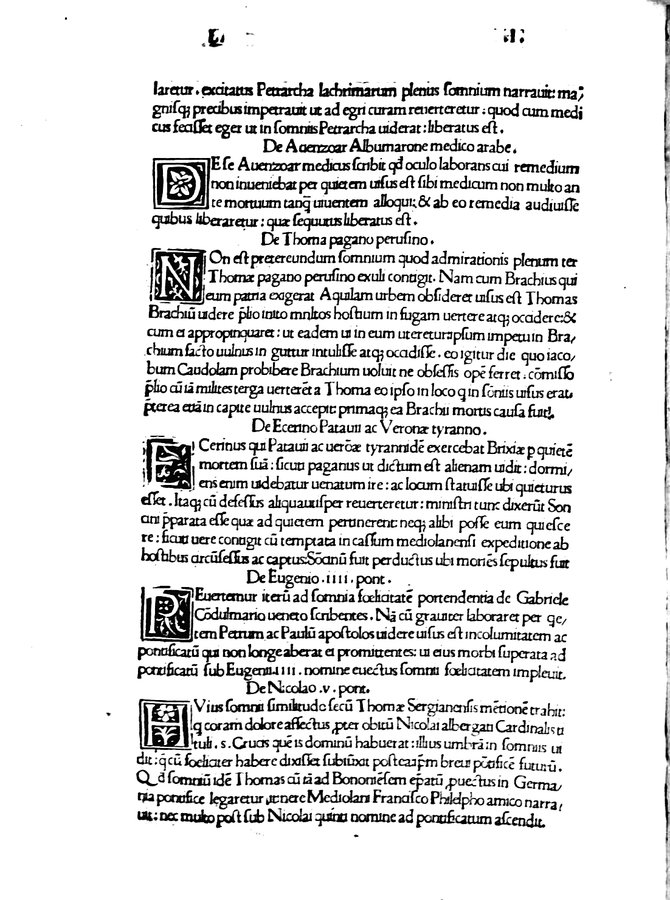 L II
laretur. excitatus Petrarcha lachrimarum plenus somnium narrauit: ma/
gnisq; precibus impetrauit ut ad egri curam reuerteretur: quod cum medi
cus fecisset eger ut in somnis Petrarcha uiderat: liberatus est.
De Auenzoar Albumarone medico arabe.
DE se Auenzoar medicus scribit qd oculo laborans cui remedium
non inueniebat per quietem uisus est sibi medicum non multo an
te mortuum tanq̃ uiuentem alloqui: & ab eo remedia audiuisse
quibus liberaretur: quæ sequutus liberatus est.
De Thoma pagano perusino.
NOn est pretereundum somnium quod admirationis plenum ter
Thomæ pagano perusino exuli contigit. Nam cum Brachius qui
eum patria exegerat Aquilam urbem obsideret uisus est Thomas
Brachiũ uidere p̃lio inito multos hostium in fugam uertere atq; occidere: &
cum ei appropinquaret: ut eadem ui in eum uteretur ipsum impetu in Bra/
chium facto uulnus in guttur intulisse atq; occidisse. eo igitur die quo iaco/
bum Caudolam prohibere Brachium uoluit ne obsessis opẽ ferret: cõmisso
p̃lio cũ iã milites terga uerterẽt a Thoma eo ipso in loco q in sõnis uisus erat.
p̃terea etiã in capite uulnus accepit: primaq; ea Brachii mortis causa fuit.
De Ecerino Patauii ac Veronæ tyranno.
ECerinus qui Patauii ac uerõæ tyrannidẽ exercebat Brixiæ p quietẽ
mortem suã: sicuti paganus ut dictum est alienam uidit: dormi/
ens enim uidebatur uenatum ire: ac locum statuisse ubi quieturus
esset. Itaq; cũ defessus aliquantisper reuerteretur: ministri tunc dixerũt Son
cini p̃parata esse quæ ad quietem pertinerent: neq; alibi posse eum quiesce
re: sicuti uere contigit cũ temptata in cassum mediolanensi expeditione ab
hostibus circũsessus ac captus: Sõcinũ fuit perductus ubi moriẽs sepultus fuit
De Eugenio .IIII. pont.
REuertemur iterũ ad somnia fœlicitatẽ portendentia de Gabriele
Cõdulmario ueneto scribentes. Nã cũ grauiter laboraret per qe/
tem Petrum ac Paulũ apostolos uidere uisus est incolumitatem ac
pontificatũ qui non longe aberat ei promittentes: ut eius morbi superata ad
pontificatũ sub Eugenii IIII. nomine euectus somnii fœlicitatem impleuit.
De Nicolao .v. pont.
HVius somnii similitudo secũ Thomæ Sergianensis mẽtionẽ trahit:
q coram dolore affectus ,pter obitũ Nicolai albergati Cardinalis ti
tuli .s. Crucis quẽ is dominũ habuerat: illius umbrã in somnis ui
dit: q cũ fœliciter habere dixisset subiũxit postea ip̃m breui põtificẽ futurũ.
Qd somniũ idẽ Thomas cũ iã ad Bononiẽsem ep̃atũ ,puectus in Germa/
nia pontifice legaretur Mediolani Francisco Philelpho amico narra/
uit: nec multo post sub Nicolai quinti nomine ad pontificatum ascendit.